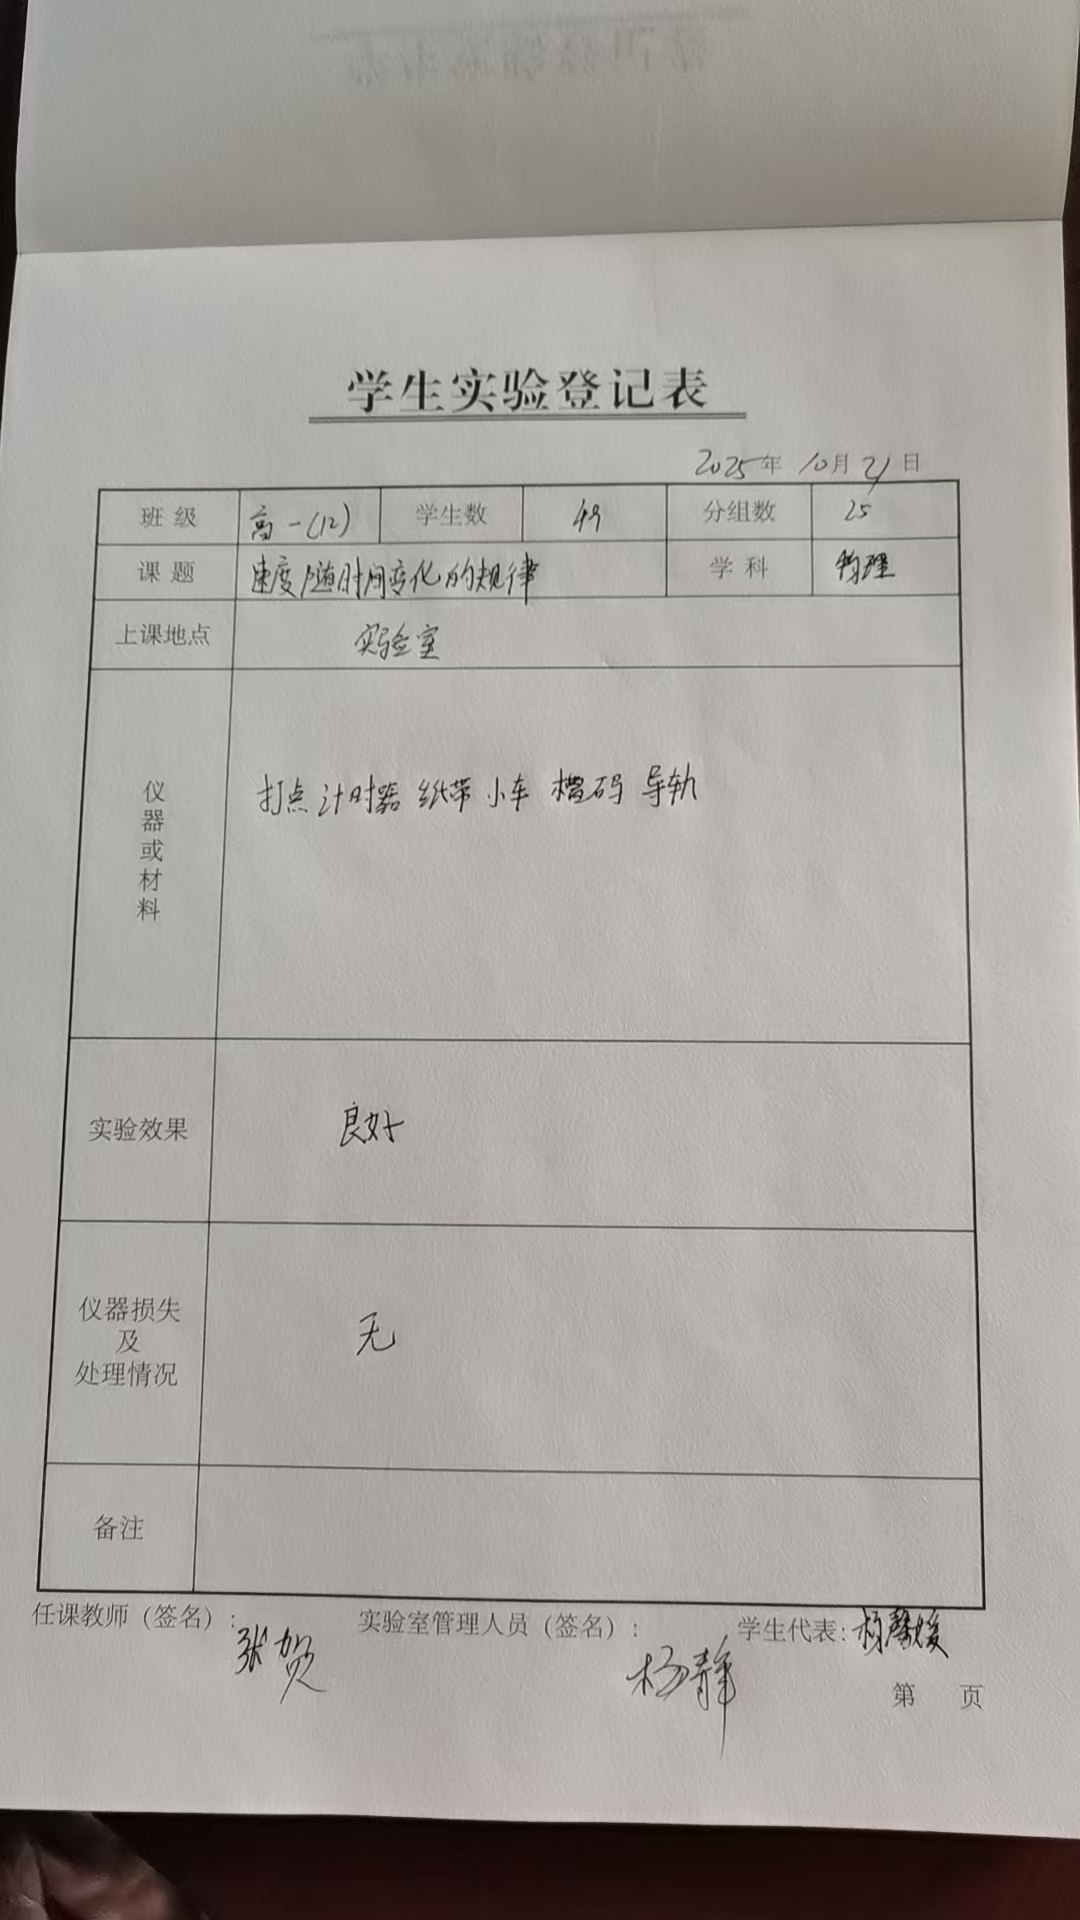 学生实验登记表
2025年 10月 21日
班级 高一(12) 学生数 49 分组数 25
课题 速度随时间变化的规律 学科 物理
上课地点 实验室
仪器或材料 打点计时器 纸带 小车 槽码 导轨
实验效果 良好
仪器损失
及
处理情况 无
备注
任课教师（签名）: 张贺 实验室管理人员（签名）: 杨静 学生代表: 杨馨媛
第 页